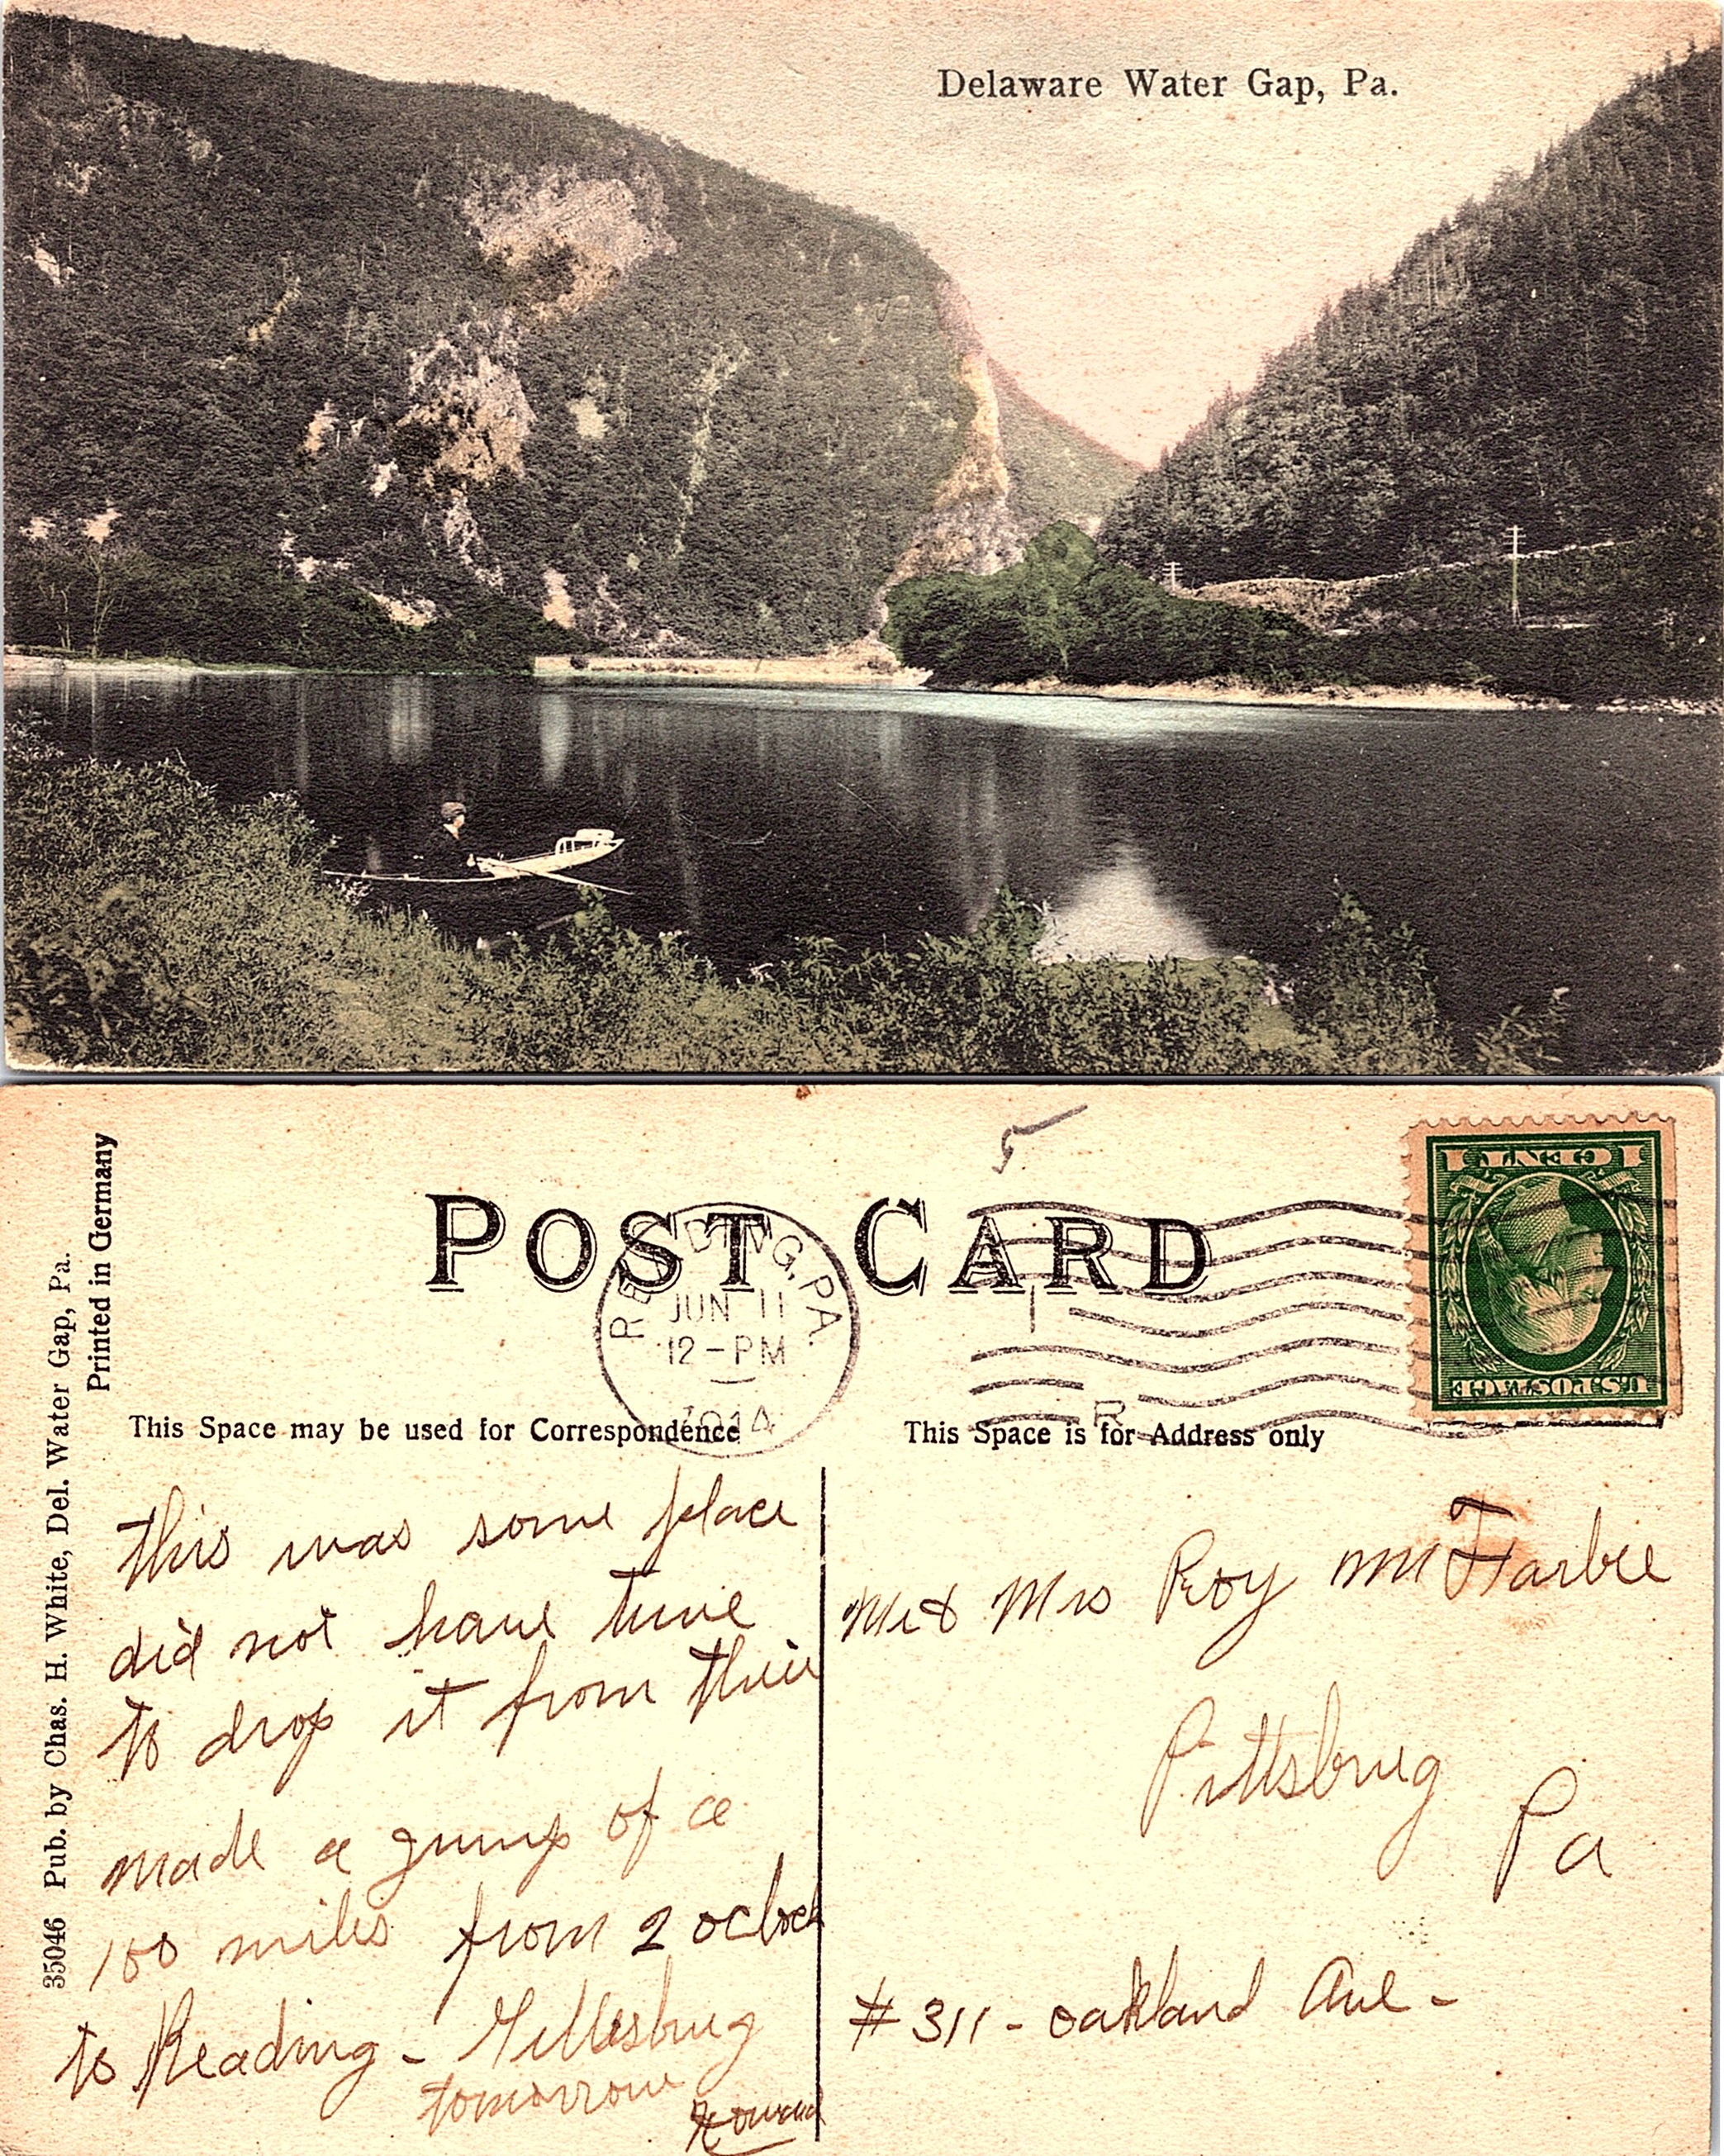 Delaware Water Gap, Pa.
35046 Pub. by Chas. H. White, Del. Water Gap, Pa.
Printed in Germany
POST CARD
READING, PA.
JUN 11
12-PM
1914
R
1 CENT 1
U.S. POSTAGE
This Space may be used for Correspondence
This Space is for Address only
this was some place
did not have time
to drop it from their
made a gump of a
100 miles from 2 oclock
to Reading - Gettesburg
tomorrow
Howard
Mr & Mrs Roy
Pittsburg
Pa
# 311 - Oakland Ave -